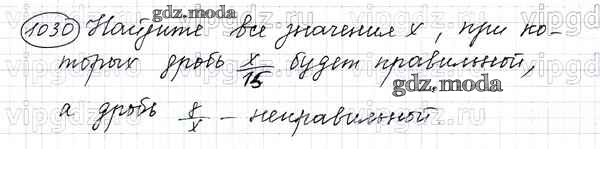 1030 Найдите все значения x, при ко-
торых дробь x/15 будет правильной,
а дробь 8/x – неправильной.
gdz.moda
gdz.moda